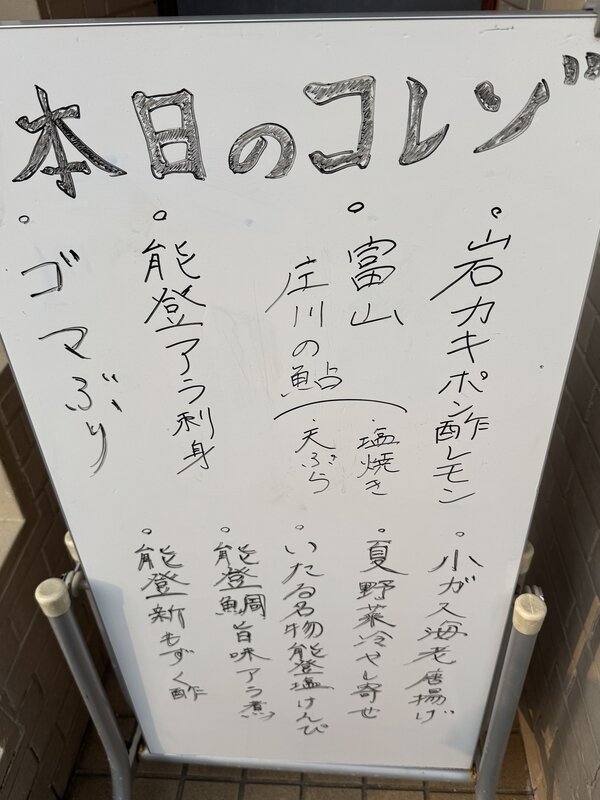 本日のコレゾ"
岩カキポン酢レモン
富山
庄川の鮎
塩焼き
天ぷら
能登アラ刺身
ゴマぶり
小ガス海老唐揚げ
夏野菜冷やし寄せ
いたる名物能登塩けんぴ
能登鯛旨味アラ煮
能登新もずく酢